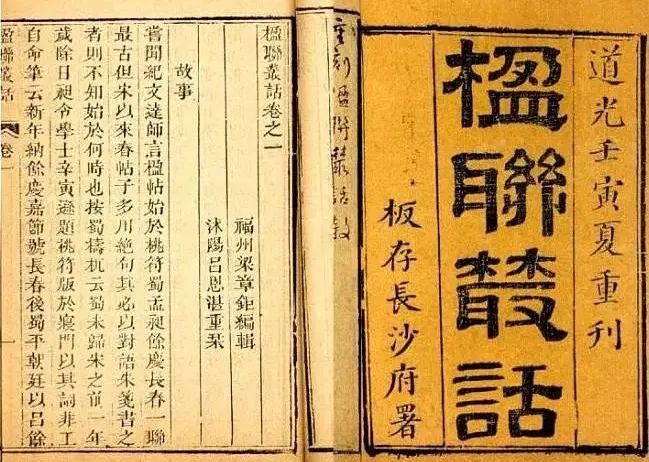 道光壬寅夏重刊
楹聯叢話
板存長沙府署
重刻楹聯叢話敘
楹聯叢話卷之一
福州梁章鉅編輯
沭陽呂恩湛重栞
故事
嘗聞紀文達師言楹帖始於桃符蜀孟昶餘慶長春一聯
最古但宋以來春帖子多用絕句其必以對語朱箋書之
者則不知始於何時也按蜀檮杌云蜀未歸宋之前一年
歲除日昶令學士辛寅遜題桃符版於寢門以其詞非工
自命筆云新年納餘慶嘉節號長春後蜀平朝廷以呂餘
楹聯叢話 卷一 一